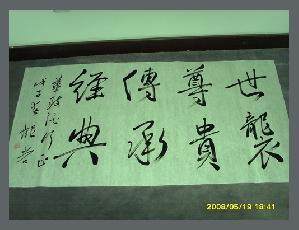 世襲
尊貴
傳承
經典
戊子
2008/05/19 18:41